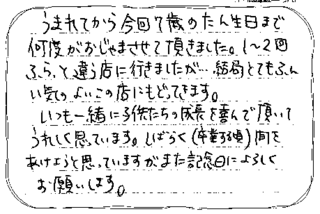 うまれてから今回7歳のたん生日まで
何度がおじゃまさせて頂きました。1〜2回
ふらっと違う店に行きましたが…結局とてもふん
い気のよいこの店にもどってきます。
いつも一緒に子供たちの成長を喜んで頂いて
うれしく思っています。しばらく(卒業する頃)間を
あけようと思っていますがまた記念日によろしく
お願いします。